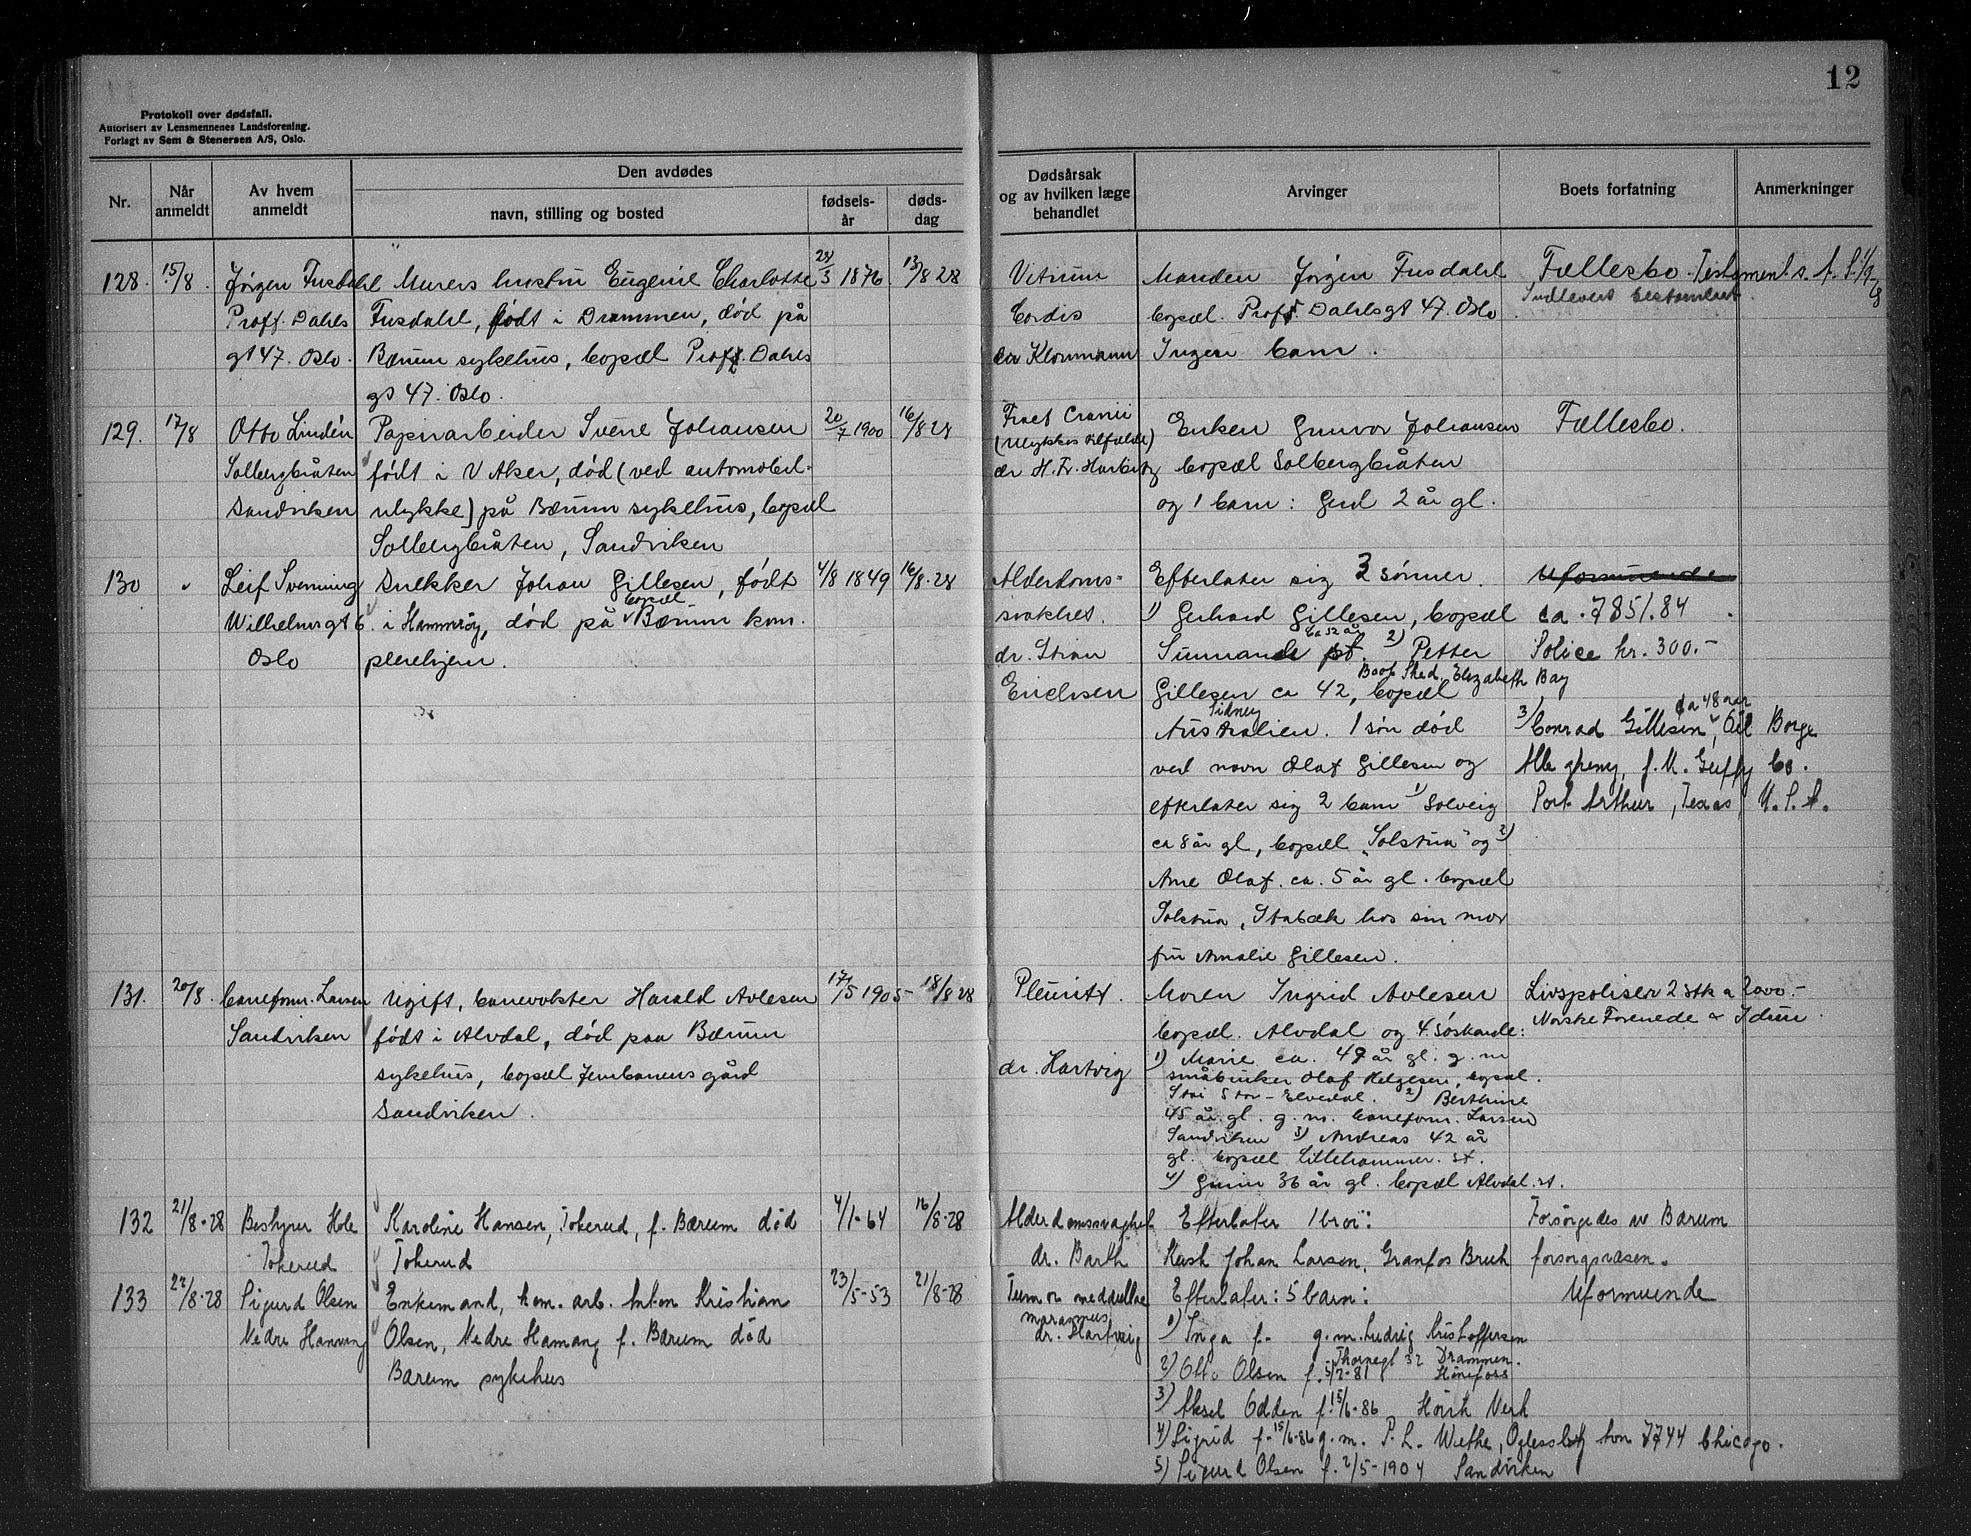 12
Protokoll over dødsfall.
Autorisert av Lensmennenes Landsforening.
Forlagt av Sem & Stenersen A/S, Oslo.
Nr.
Når anmeldt
Av hvem anmeldt
Den avdødes
navn, stilling og bosted
fødsels-år
døds-dag
Dødsårsak og av hvilken læge behandlet
Arvinger
Boets forfatning
Anmerkninger
128. 15/8. Jørgen Fusdahl
Proff. Dahls
gt 47. Oslo.
Murers hustru Eugenie Charlotte
Fusdahl, født i Drammen, død på
Bærum sykehus, bopæl Proff. Dahls
gt 47. Oslo.
28/3 1876 13/8 28
Vitium
Cordis
dr Klouman
Manden Jørgen Fusdahl
bopæl. Proff Dahlsgt 47. Oslo
Ingen barn.
Fællesbo. Testament s. A. S. 1/9 28
Indlevert testament.
129. 17/8 Otto Lindén
Solbergbråten
Sandviken
Papirarbeider Sverre Johansen
født i V Aker, død (ved automobil-
ulykke) på Bærum sykehus, bopæl
Solbergbråten, Sandviken
20/7 1900 16/8 28
Fract Cranii
(Ulykkestilfælde)
dr H. Fr. Harbitz
Enken Gunvor Johansen
bopæl Solbergbråten
og 1 barn: Gerd 2 år gl.
Fællesbo.
130 " Leif Svenning
Wilhelmsgt 6.
Oslo
Snekker Johan Gillesen, født
i Hammrøy, død på bopæl Bærum kom.
pleiehjem.
4/8 1849 16/8-28
Alderdoms-
svakhet.
dr. Stian
Erichsen
Efterlater sig 3 sønner.
1) Gerhard Gillesen, bopæl
ca 52 år
Sunnan st. 2) Petter
Boat Shed, Elizabeth Bay
Gillesen ca 42, bopæl
Sidney
Australien. 1 søn død
ved navn Olaf Gillesen og
efterlater sig 2 barn 1) Solveig
ca 8 år gl, bopæl "Solstua" og 2)
Arne Olaf. ca. 5 år gl. bopæl
Solstua, Stabæk hos sin mor
fru Amalie Gillesen.
Uformuende
ca. 7851.84
Police kr. 300.-
ca 48 aar
3) Conrad Gillesen, Oil Barge
Allegheny, f. M. Guffy Co.
Port Arthur, Texas, U.S.A.
131. 20/8. baneform. Larsen
Sandviken
Ugift, banevokter Harald Avlesen
født i Alvdal, død paa Bærum
sykehus, bopæl Jernbanens gård
Sandviken.
17/5 1905 - 18/8 28
Pleuritt.
dr. Hartvig
Moren Ingrid Avlesen
bopæl. Alvdal og 4 søskende:
1) Marie ca. 49 år gl. g. m
småbruker Olaf Helgesen, bopæl.
Stai Stor-Elvedal. 2) Berthine
45 år. gl. g. m. baneform. Larsen
Sandviken 3) Andreas 42 år
gl. bopæl Lillehammer. st.
4) 36 år gl. bopæl Alvdal. st.
Livspoliser 2 stk a 2000.-
Norske Forenede & Idun.
132 21/8-28 Bestyrer Hole
Tokerud
Karoline Hansen, Tokerud, f. Bærum død
Tokerud
4/1-64 16/8-28
Alderdomssvaghet
dr. Barth
Efterlater 1 bror:
Kusk Johan Larsen, Granfos Bruk
Forsørgedes av Bærum
forsorgsvæsen.
133 22/8-28 Sigurd Olsen
Nedre Hamang
Enkemand, kom. arb. Anton Kristian
Olsen, Nedre Hamang f. Bærum død
Bærum sykehus
23/5-53 21/8-28
Tumor medullae
marasmus
dr. Hartvig
Efterlater: 5 barn:
1) Inga f. g.m. Ludvig Kristoffersen
Thornegt 32 Drammen.
2) Otto Olsen f. 5/2-81 Hønefoss
3) Aksel Odden f. 15/6-86 Verk
4) Sigrid f. 15/6-86 g.m. P. L. Wethe, 7744 Chicago.
5) Sigurd Olsen f. 2/5-1904 Sandviken
Uformuende